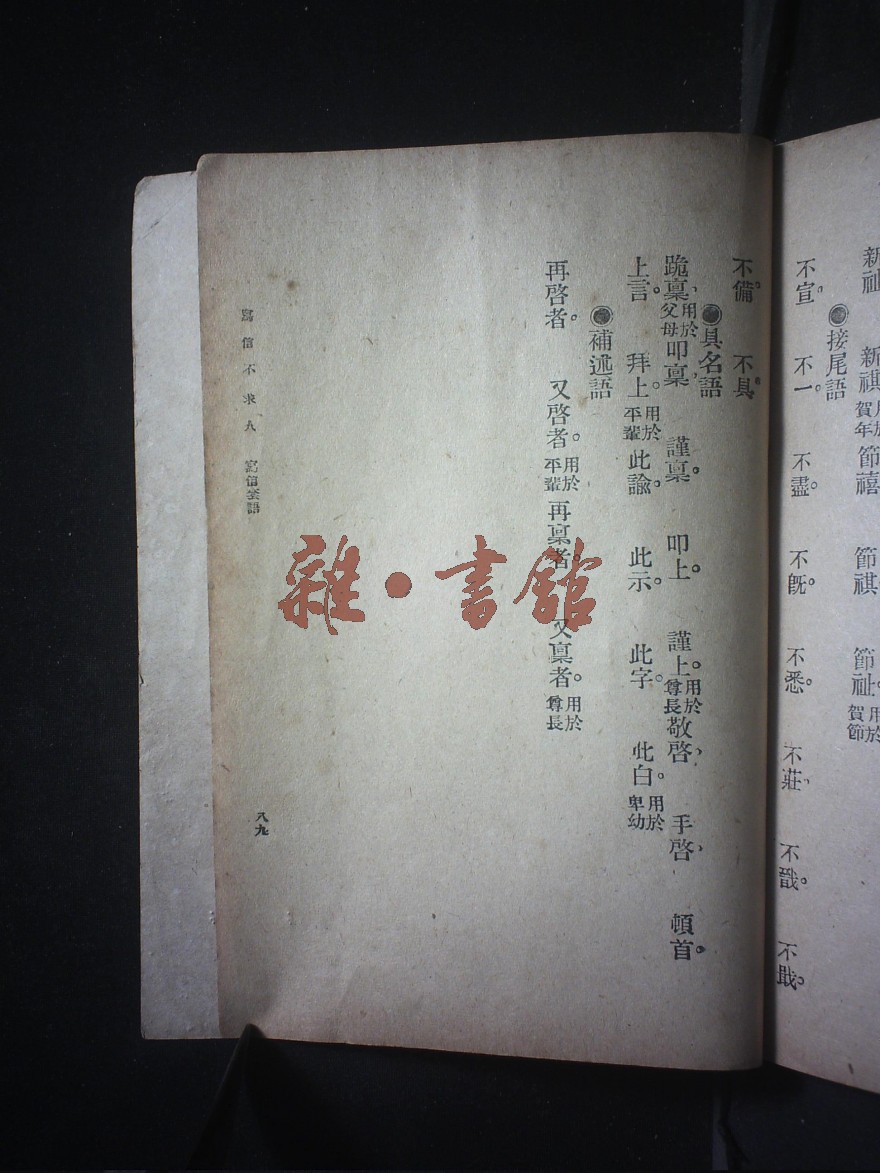 新祉 新祺 用於賀年 節禧 節祺 節祉。用於賀節
●接尾語
不宣。 不一。 不盡。 不旣。 不悉。 不莊、 不戩。 不戢。
不備。 不具。
●具名語
跪稟、用於父母 叩稟、 謹稟。 叩上。 謹上。用於尊長 敬啓、 手啓、 頓首。
上言。 拜上。用於平輩 此諭。 此示。 此字。 此白。用於卑幼
●補述語
再啓者。 又啓者。用於平輩 再稟者。 又稟者。用於尊長
寫信不求人 寫信套語
八九
雜·書館